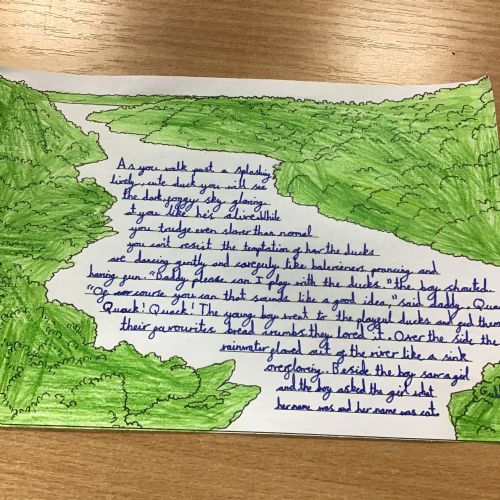 As you walk past a splashing
lively, cute duck you will see
the dark, foggy sky glaring
at you like he's alive. While
you trudge even slower than normal
you can't resist the temptation of how the ducks
are dancing gently and carefully like balerieners prancing and
having fun. "Daddy please can I play with the ducks." the boy shouted.
"Of course you can that sounds like a good idea," said daddy. Quack
Quack! Quack! The young boy went to the playful ducks and fed them
their favourites bread crumbs they loved it. Over the side the
rainwater flowed out of the river like a sink
overflowing. Beside the boy saw a girl
and the boy asked the girl what
her name was and her name was cat.